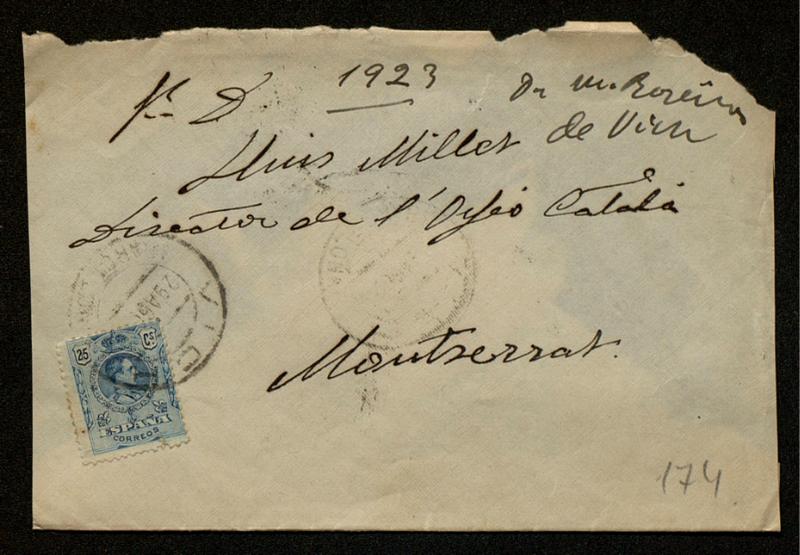 1923
Sr. D.
Lluis Millet
de Vich
Director de l'Orfeó Català
Montserrat.
VICH
29 AGO
25 Cs
ESPAÑA
CORREOS
174